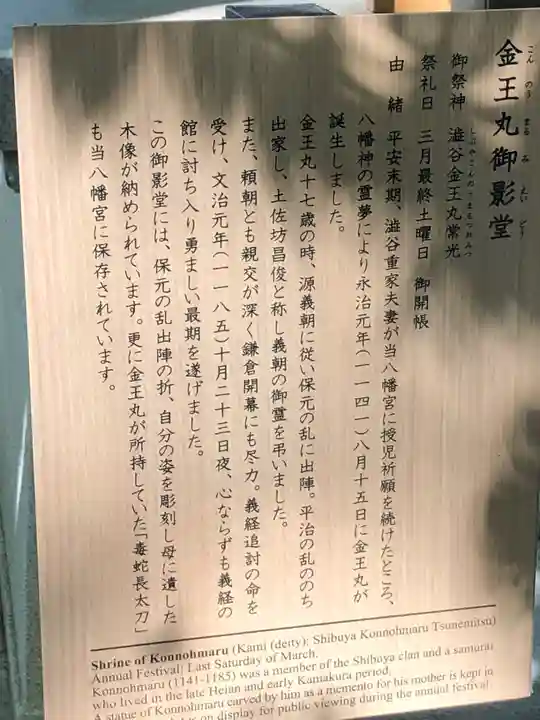 金王丸御影堂
こんのうまるみえいどう
御祭神　澁谷金王丸常光
しぶやこんのうまるつねみつ
祭礼日　三月最終土曜日　御開帳
由　緒　平安末期、澁谷重家夫妻が当八幡宮に授児祈願を続けたところ、
八幡神の霊夢により永治元年(一一四一)八月十五日に金王丸が
誕生しました。
金王丸十七歳の時、源義朝に従い保元の乱に出陣。平治の乱ののち
出家し、土佐坊昌俊と称し義朝の御霊を弔いました。
また、頼朝とも親交が深く鎌倉開幕にも尽力。義経追討の命を
受け、文治元年(一一八五)十月二十三日夜、心ならずも義経の
館に討ち入り勇ましい最期を遂げました。
この御影堂には、保元の乱出陣の折、自分の姿を彫刻し母に遺した
木像が納められています。更に金王丸が所持していた「毒蛇長太刀」
も当八幡宮に保存されています。
Shrine of Konnohmaru (Kami (deity): Shibuya Konnohmaru Tsunemitsu)
Annual Festival: Last Saturday of March.
Konnohmaru (1141-1185) was a member of the Shibuya clan and a samurai
who lived in the late Heian and early Kamakura period.
A statue of Konnohmaru carved by him as a memento for his mother is kept in
is on display for public viewing during the annual festival.